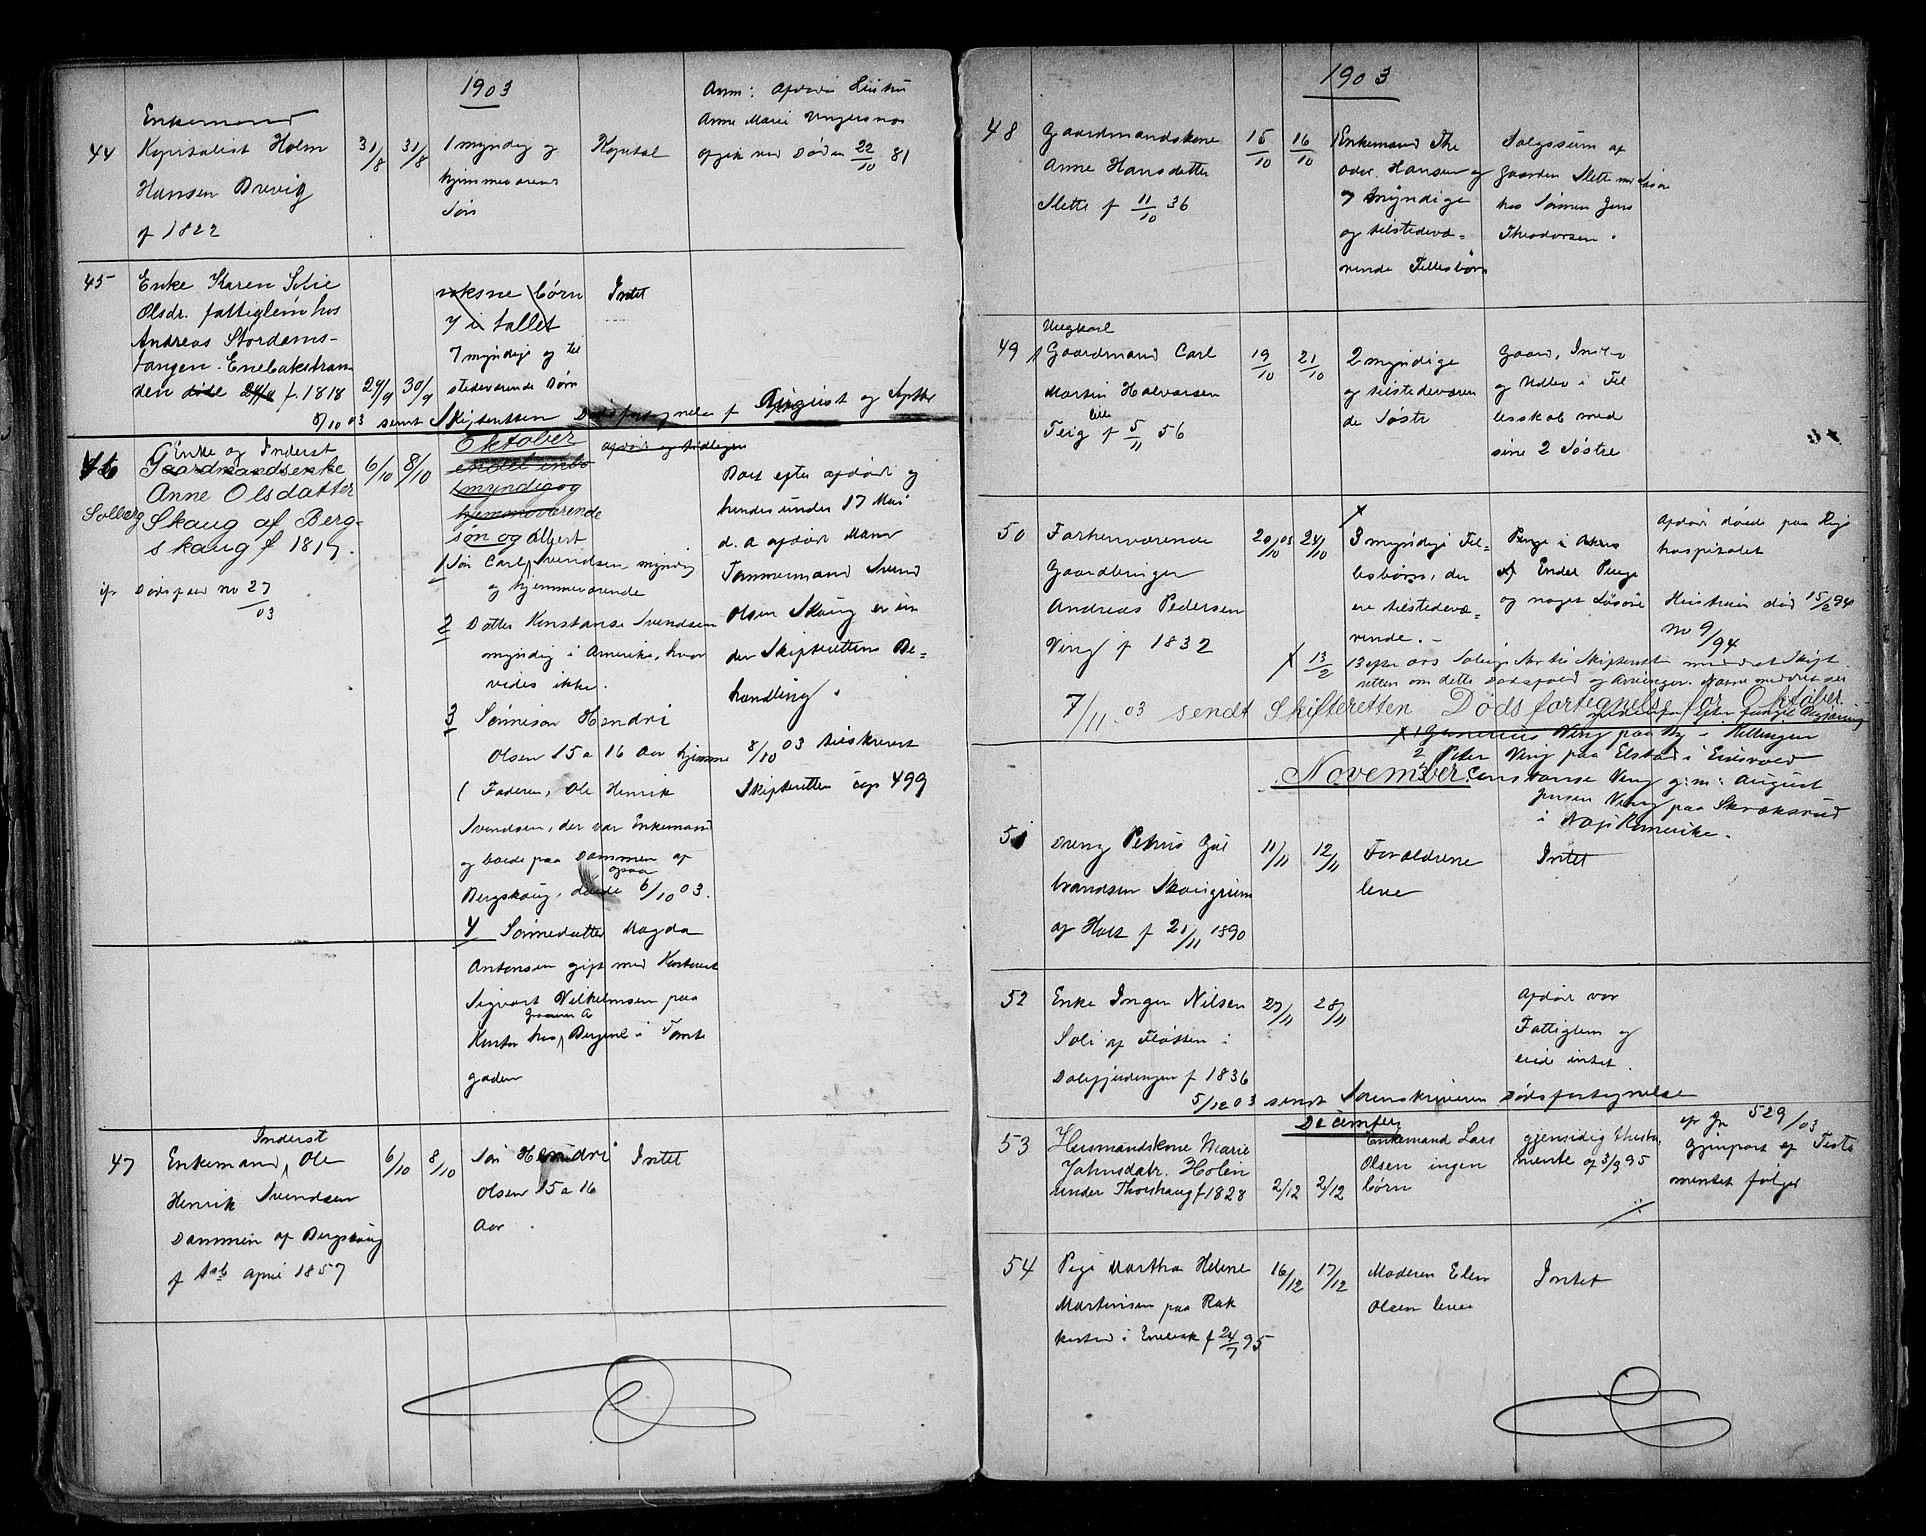 1903
Enkemand
44 Kapitalist Holm
Hansen Brevig
f 1822
31/8 31/8
1 myndig og
hjemmeværend
Søn
Kapital
Anm: Afdøde Hustru
Anne Marie
afgik ved Døden 22/10 81
45 Enke Karen Sofie
Olsdr. fattiglem hos
Andreas Stordams-
tangen. Enebakstran
den døde 29/9 f. 1818
29/9 30/9
voksne børn
7 i tallet
7 myndige og til
stedeværende Børn
Intet
8/10 03 sendt Skifteretten Dødsfortegnelse f August og Septbr
Oktober
46 Enke og Inderst
Gaardmandsenke
Anne Olsdatter
Solberg Skaug af Berg-
skaug f 1817.
cfr Dødsfald no 27/03
6/10 8/10
myndig og
hjemmeværende
søn og Albert
1 Søn Carl Svendsen myndig
og hjemmeværende
2 Datter Konstanse Svendsen
myndig i Amerika, hvor
vides ikke.
3 Sønnesøn Hendri
Olsen 15 a 16 Aar hjemme
( Faderen, Ole Henrik
Svendsen, der var Enkemand
og boede paa Dammen af
Bergskaug, døde ogsaa 6/10 03.
4 Sønnedatter Magda
Antonsen gift med Kontorist
Sigvart Vilhelmsen paa
Kontor hos Bergene i Tomte
gaden
afdøde og tidligere
Boet efter afdøde og
hendes under 17 Mai
d. a afdøde Mand
Tømmermand Svend
Olsen Skaug er un
der Skifterettens Be-
handling.
8/10 03 tilskrevet
Skifteretten cop 499
47 Enkemand, Inderst Ole
Henrik Svendsen
Dammen af Bergskaug
f april 1857
6/10 8/10
Søn Hendri
Olsen 15 a 16
Aar.
Intet
1903
48 Gaardmandskone
Anne Hansdatter
Slette f 11/10 36
15/10 16/10
Enkemand The
odor. Hansen og
7 myndige
og tilstedevæ-
rende Fellesbørn
Salgssum af
gaarden Slette med Løsøre
hos Sønnen Jens
Theodorsen.
49 Ungkarl
Gaardmand Carl
Martin Halvorsen
Teig lille f 5/11 56
19/10 21/10
2 myndige
og tilstedeværen
de Søstre
Gaard, Indbo
og Udbo i Fel
lesskab med
sine 2 Søstre
50 Forhenværende
Gaardbruger
Andreas Pedersen
Ving f 1832
20/10 03 24/10
3 myndige Fel-
lesbørn, der
ere tilstedevæ-
rende.-
Penge i
Endel Penge
og noget Løsøre
Afdøde døde paa Rigs
hospitalet
Hustruen død 15/2 94
no 9/94
X 13/2
7/11 03 sendt Skifteretten Dødsfortegnelse for Oktober
Ving paa By i Kellingen
2 Peter Ving paa Elstad i Eidsvold
3 Constanse Ving g.m. August
Jensen Ving paa Skraksrud
i Næs Romerike.
November.
51 Dreng Petrus Gul
brandsen Skaugrim
af Holt f 21/11 1890
11/11 12/11
Forældrene
leve
Intet
52 Enke Inger Nilsen
Soli af Fløtten i
Dalefjerdingen f 1836
27/11 28/11
Afdøde var
Fattiglem og
eiede intet.
5/12 03 sendt Sorenskriveren Dødsfortegnelse
December
53 Husmandskone Marie
Johnsdatr. Holen
under Thorshaug f 1828
2/12 2/12
Enkemand Lars
Olsen ingen
børn
gjensidig thesta
mente af 3/9 95
cfr Jn 529/03
Gjenpart af Testa
mentet følger
54 Pige Martha Helene
Martinsen paa Rak
kestad i Enebak f 24/7 95
16/12 17/12
Moderen Elen
Olsen lever
Intet